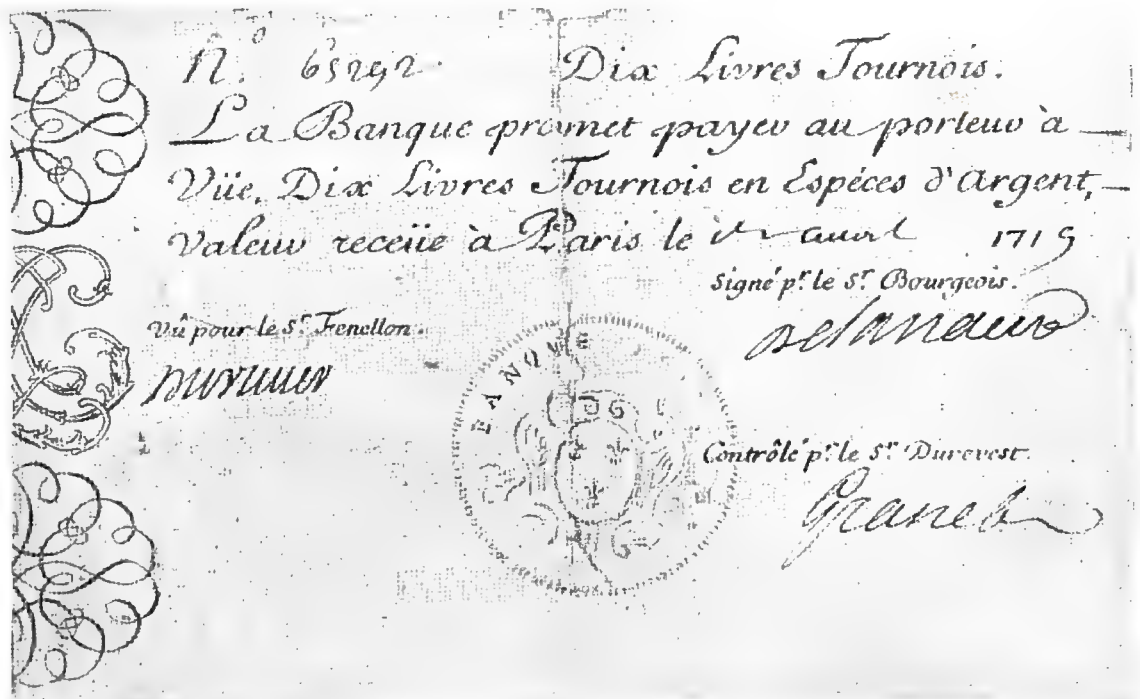 N.º 65292. Dix Livres Tournois.
La Banque promet payer au porteur à
Vüe, Dix Livres Tournois en Espéces d'Argent,
valeur receüe à Paris le 1er auril 1719
Signé pr. le Sr. Bourgeois.
Vû pour le Sr. Fenellon.
Delanauve
Contrôlé pr. le Sr. Durevest.
Granet
BANQUE